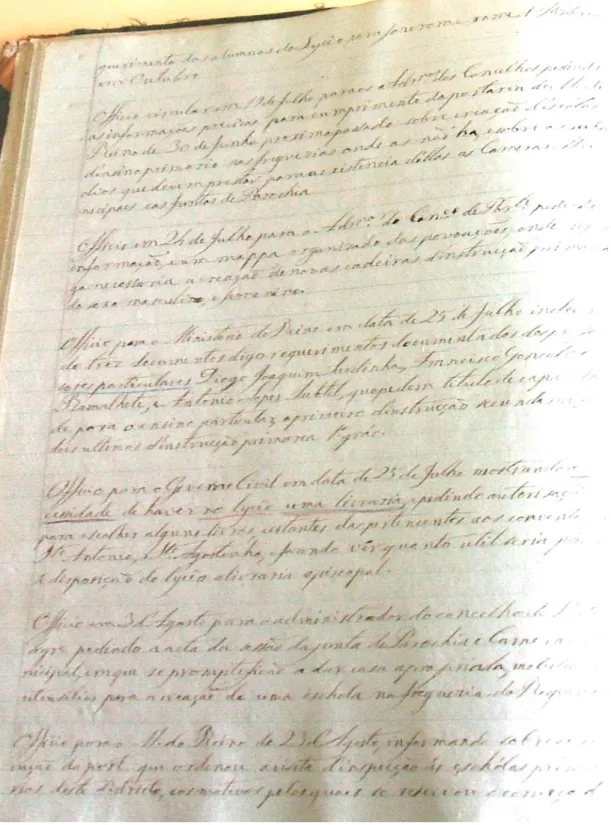 querimento das alumnas do Lyceo para fazerem exame
em Outubro
Officio circular em 19 de Julho para os Adres dos Concelhos pedindo
as informações precisas para cumprimento da portaria do
Reino de 30 de Junho proximo passado sobre creação d'escolas
d'ensino primario nas freguezias onde as não ha, e sobre o
que devem prestar para a existencia d'ellas as Camaras
nicipaes e as Juntas de Parochia
Officio em 24 de Julho para o Adror do Concº de
informação, e um mappa organisado das povoações, onde
necessaria a creação de novas cadeiras d'instrucção
do sexo masculino, e femenino.
Officio para o Ministerio do Reino em data de 25 de Julho
do tres documentos digo requerimentos documentados dos
sores particulares Diogo Joaquim Sardinha, Francisco
Ramalhete, e Antonio Lopes Subtil, que pedem titulo de
de para o ensino particular, o primeiro d'instrucção
dos ultimos d'instrucção primaria 1º gráo.
Officio para o Governo Civil em data de 25 de Julho mostrando a
cessidade de haver no lyceo uma livraria, e pedindo
para escolher alguns livros restantes dos pertencentes aos
Sto Antonio, e Sto Agostinho, e fazendo vêr quanto util seria
á disposição do lyceo a livraria episcopal.
Officio em 3 d'Agosto para o administrador do concelho de
pedindo a acta da sessão da junta de Parochia e Camara
nicipal, em que se promptifição a dar casa apropriada, mobilia
utensilios para a creação de uma eschola na freguezia do
Officio para o M. do Reino de 23 d'Agosto, informando sobre a
da port. que ordenou a visita d'inspecção ás eschólas
rias deste Districto, e os motivos pelos quaes se reservou o começo